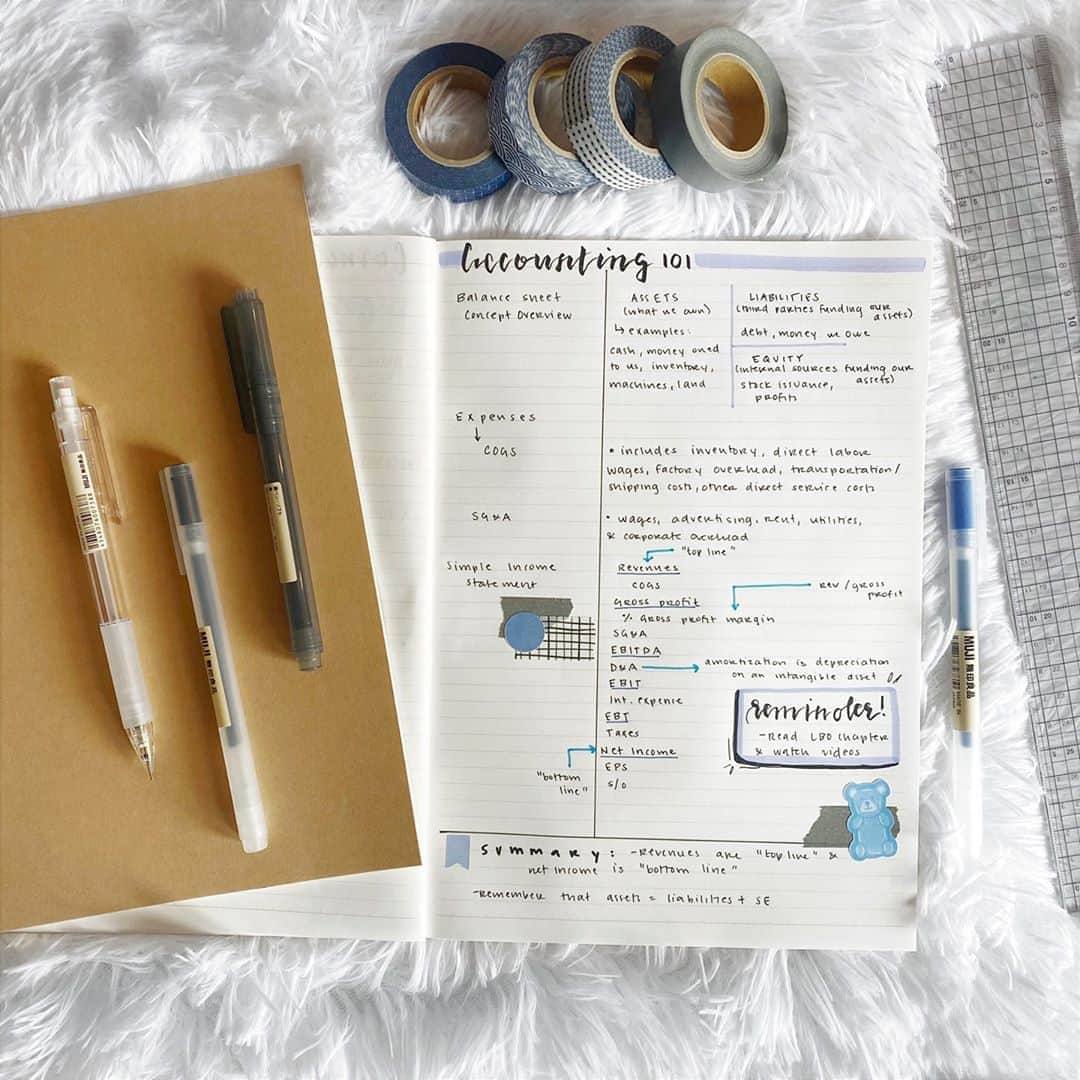 Accounting 101
Balance sheet
Concept Overview
ASSETS
(what we own)
↳ examples:
cash, money owed
to us, inventory,
machines, land
LIABILITIES
(third parties funding our
assets)
debt, money we owe
EQUITY
(internal sources funding our
assets)
stock issuance,
profits
Expenses
↓
COGS
• includes inventory, direct labor
wages, factory overhead, transportation/
shipping costs, other direct service costs
SG&A
• wages, advertising, rent, utilities,
& corporate overhead
Simple Income
statement
"top line"
Revenues
COGS
Rev/gross
profit
Gross profit
% Gross profit margin
SG&A
EBITDA
D&A → amortization is depreciation
on an intangible asset
EBIT
Int. expense
EBT
Taxes
Net Income
"bottom
line"
EPS
S/O
reminder!
-Read LBO chapter
& watch videos
Summary: -Revenues are "top line" &
net income is "bottom line"
-Remember that assets = liabilities + SE
MUJI 無印良品
MUJI 無印良品